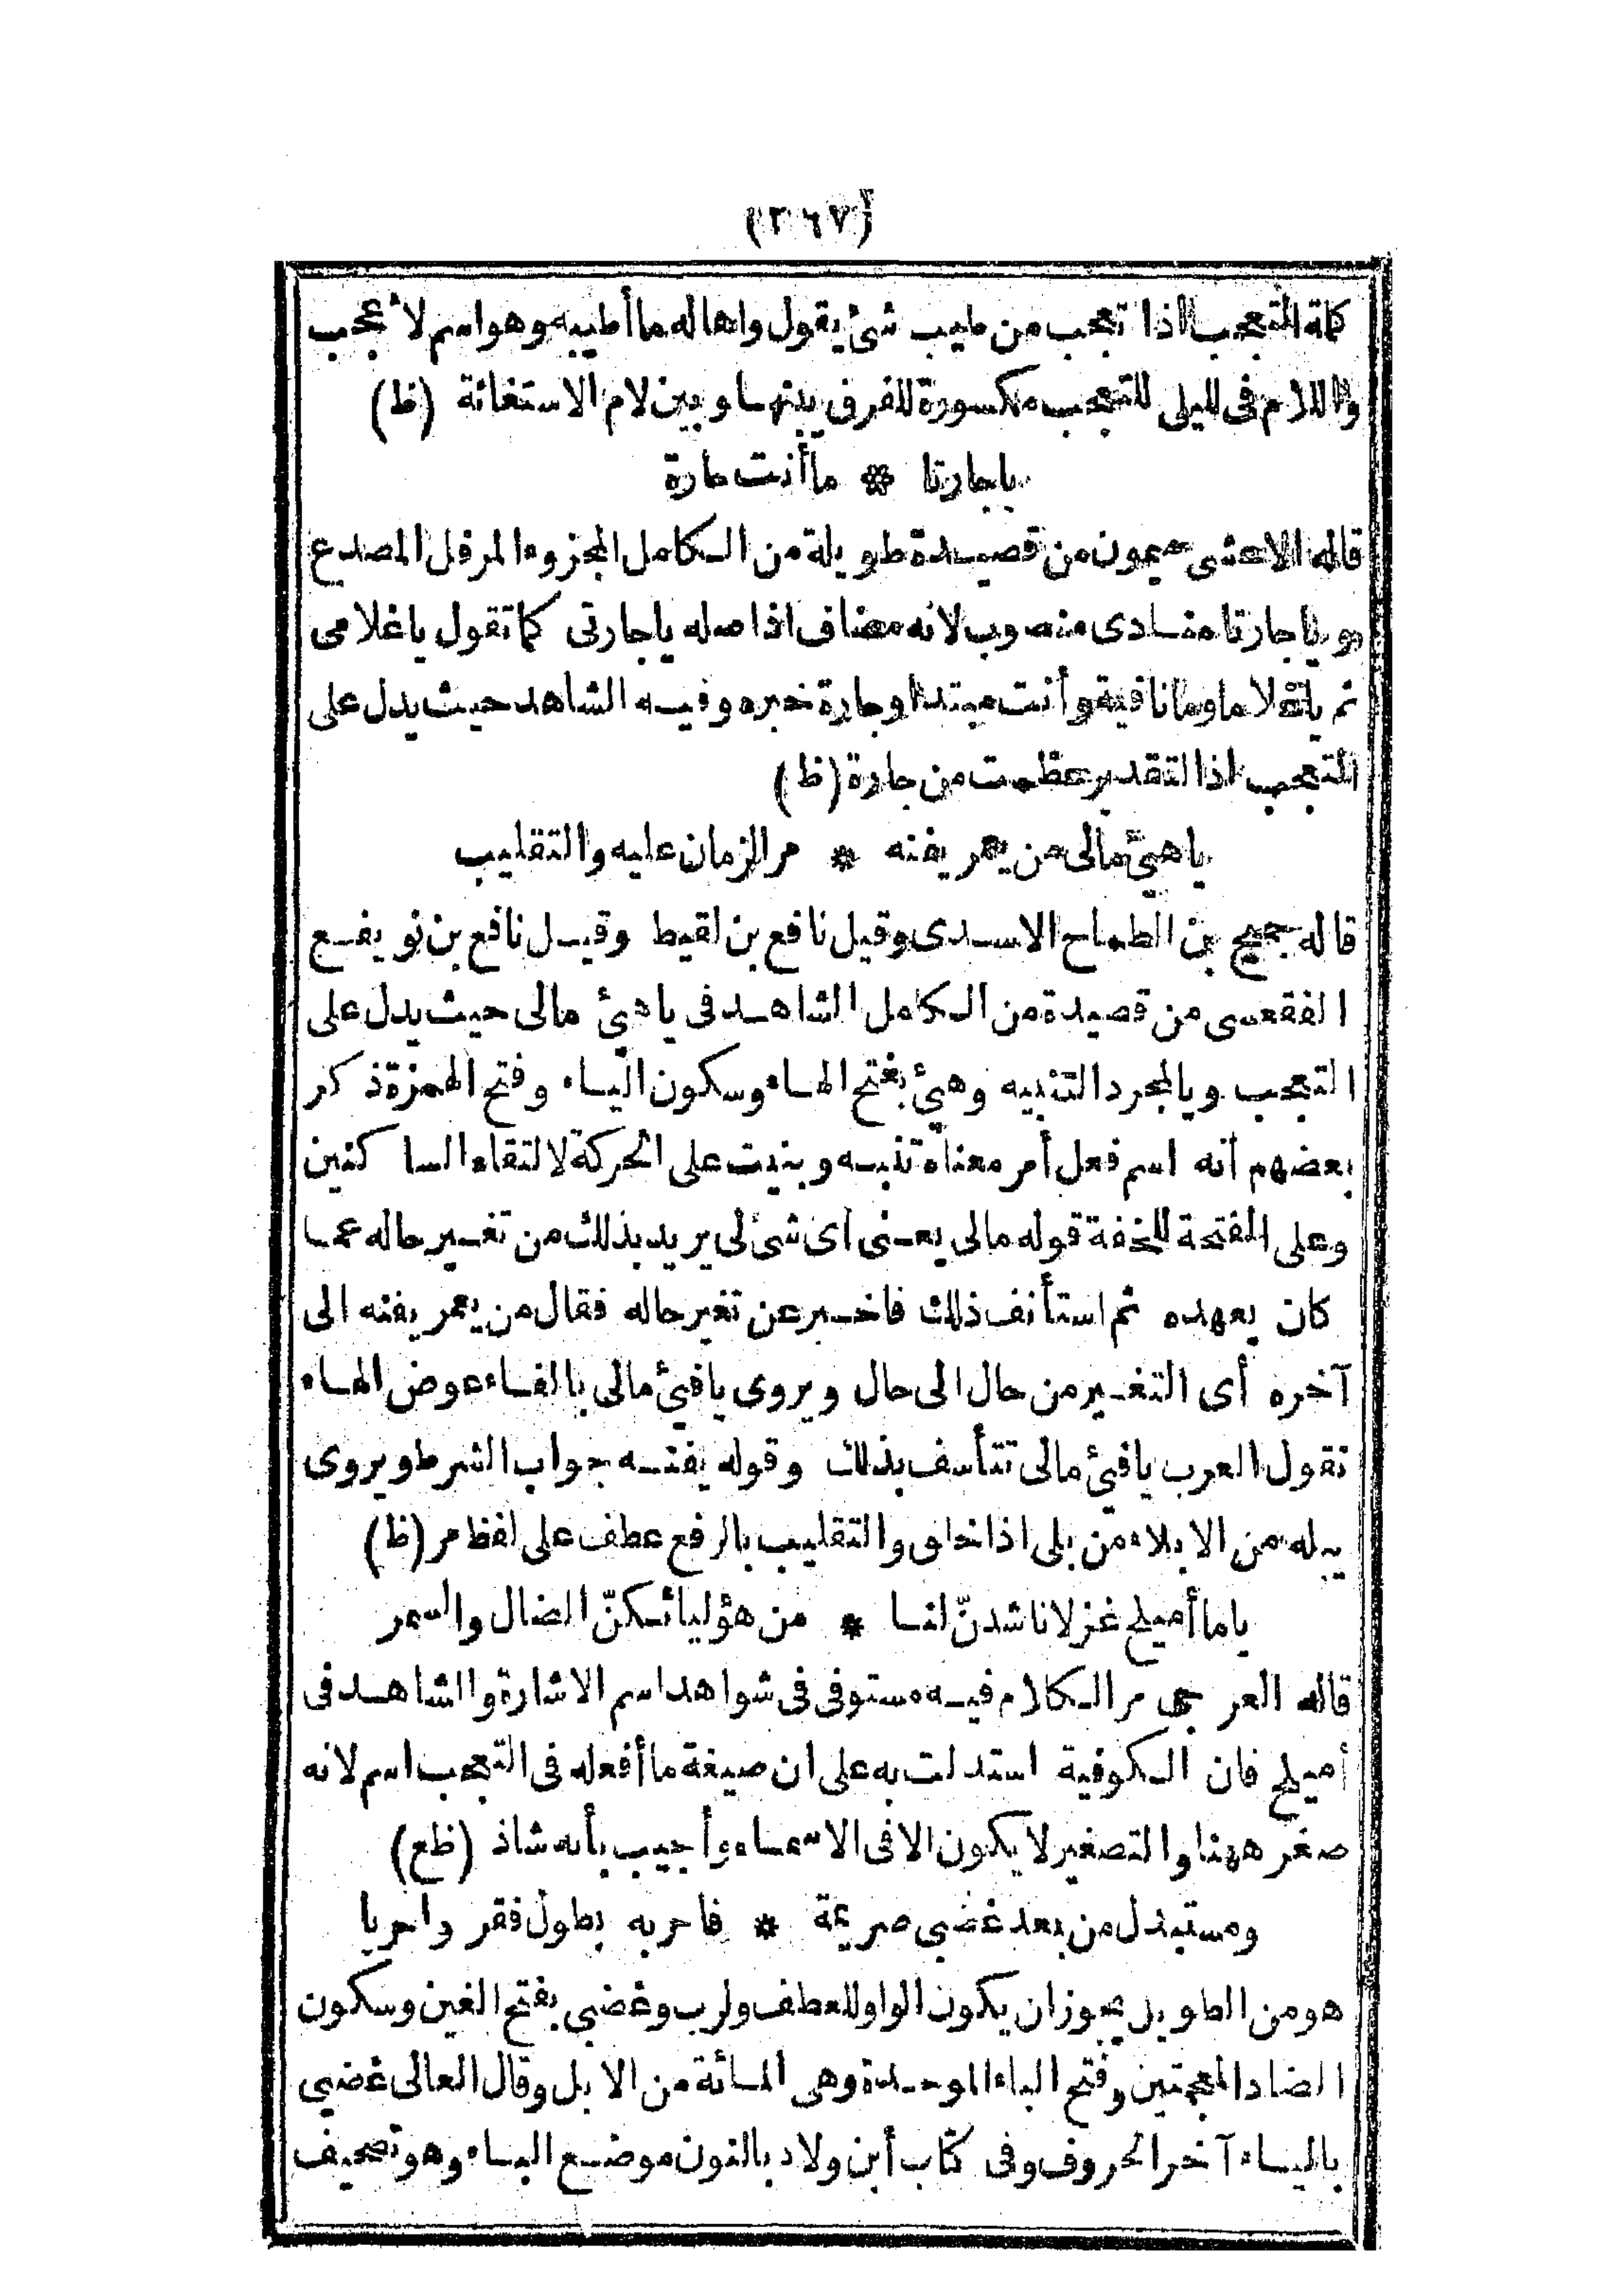 (٢٦٧)
كلمة التعجب اذا تعجب من طيب شئ يقول واها له ما أطيبه وهو اسم لأعجب
واللام فى لليلى للتعجب مكسورة للفرق بينها وبين لام الاستغاثة (ظ)
يا جارتا * ما أنت جارة
قاله الاعشى ميمون من قصيدة طويلة من الكامل المجزوء المرفل المصدع
هو يا جارتا منادى منصوب لانه مضاف اذ اصله يا جارتى كما تقول يا غلامى
ثم يا غلاما وما نافية وأنت مبتدا وجارة خبره وفيه الشاهد حيث يدل على
التعجب اذ التقدير عظمت من جارة (ظ)
يا هئ مالى من يعمر يفنه * مر الزمان عليه والتقليب
قاله جميح بن الطماح الاسدى وقيل نافع بن لقيط وقيل نافع بن نويفع
الفقعسى من قصيدة من الكامل الشاهد فى يا هئ مالى حيث يدل على
التعجب ويا لمجرد التنبيه وهئ بفتح الهاء وسكون الياء وفتح الهمزة ذكر
بعضهم أنه اسم فعل أمر معناه تنبه وبنيت على الحركة لالتقاء الساكنين
وعلى الفتحة للخفة قوله مالى يعنى أى شئ لى يريد بذلك من تغير حاله عما
كان يعهده ثم استأنف ذلك فاخبر عن تغير حاله فقال من يعمر يفنه الى
آخره أى التغير من حال الى حال ويروى يا فئ مالى بالفاء عوض الهاء
تقول العرب يا فئ مالى تتأسف بذلك وقوله يفنه جواب الشرط ويروى
يبله من الابلاء من بلى اذا خلق والتقليب بالرفع عطف على لفظ مر (ظ)
يا ما أميلح غزلانا شدنّ لنا * من هؤليائكنّ الضال والسمر
قاله العرجى مر الكلام فيه مستوفى فى شواهد اسم الاشارة والشاهد فى
أميلح فان الكوفية استدلت به على ان صيغة ما أفعله فى التعجب اسم لانه
صغر ههنا والتصغير لا يكون الا فى الاسماء وأجيب بأنه شاذ (ظع)
ومستبدل من بعد غضبى صريمة * فاحر به بطول فقر واحريا
هو من الطويل يجوز ان يكون الواو للعطف ولرب وغضبى بفتح الغين وسكون
الضاد المعجمتين وفتح الباء الموحدة وهى المائة من الابل وقال العالى غضبى
بالياء آخر الحروف وفى كتاب أبن ولاد بالنون موضع الباء وهو تصحيف